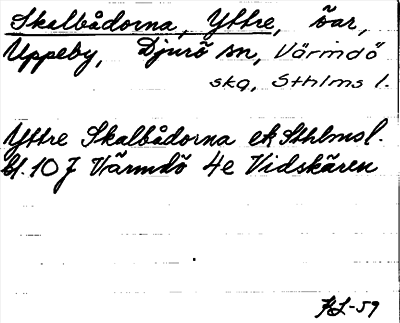 Skalbådorna, Yttre, öar,
Uppeby, Djurö sn, Värmdö
skg, Sthlms l.
Yttre Skalbådorna ek Sthlms l.
bl. 10 J Värmdö 4e Vidskären
AL-59